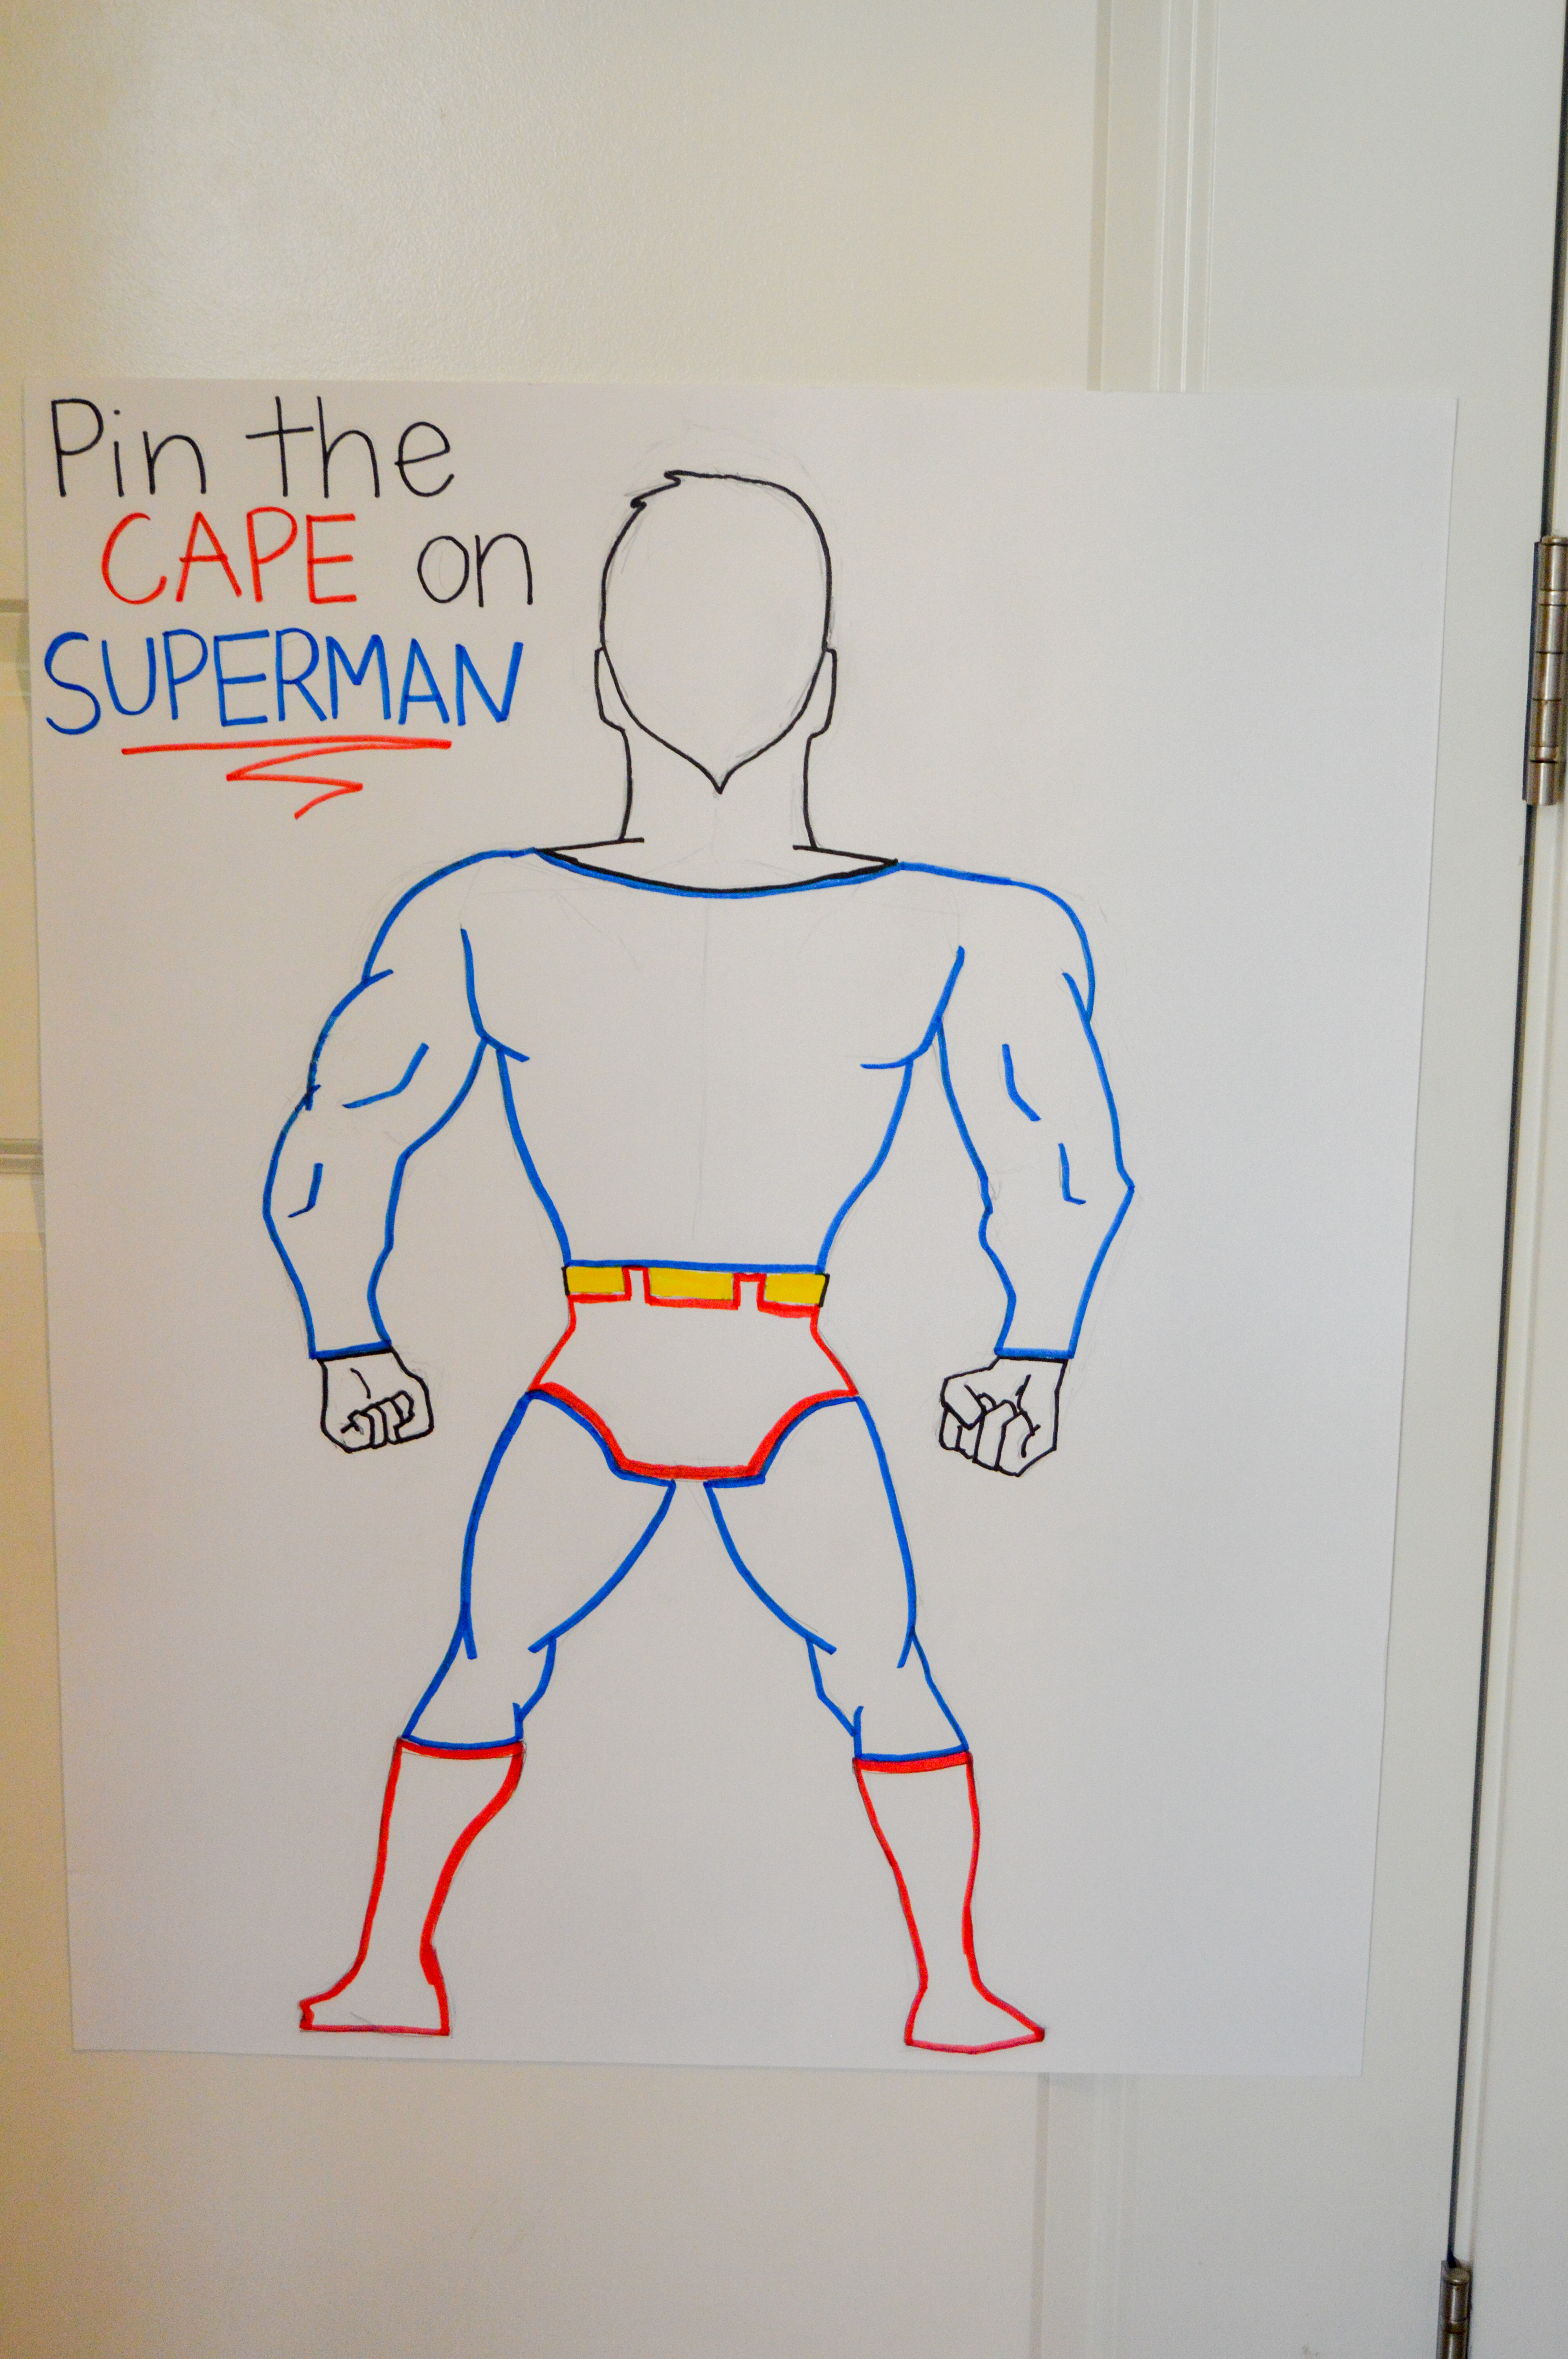 Pin the
CAPE on
SUPERMAN